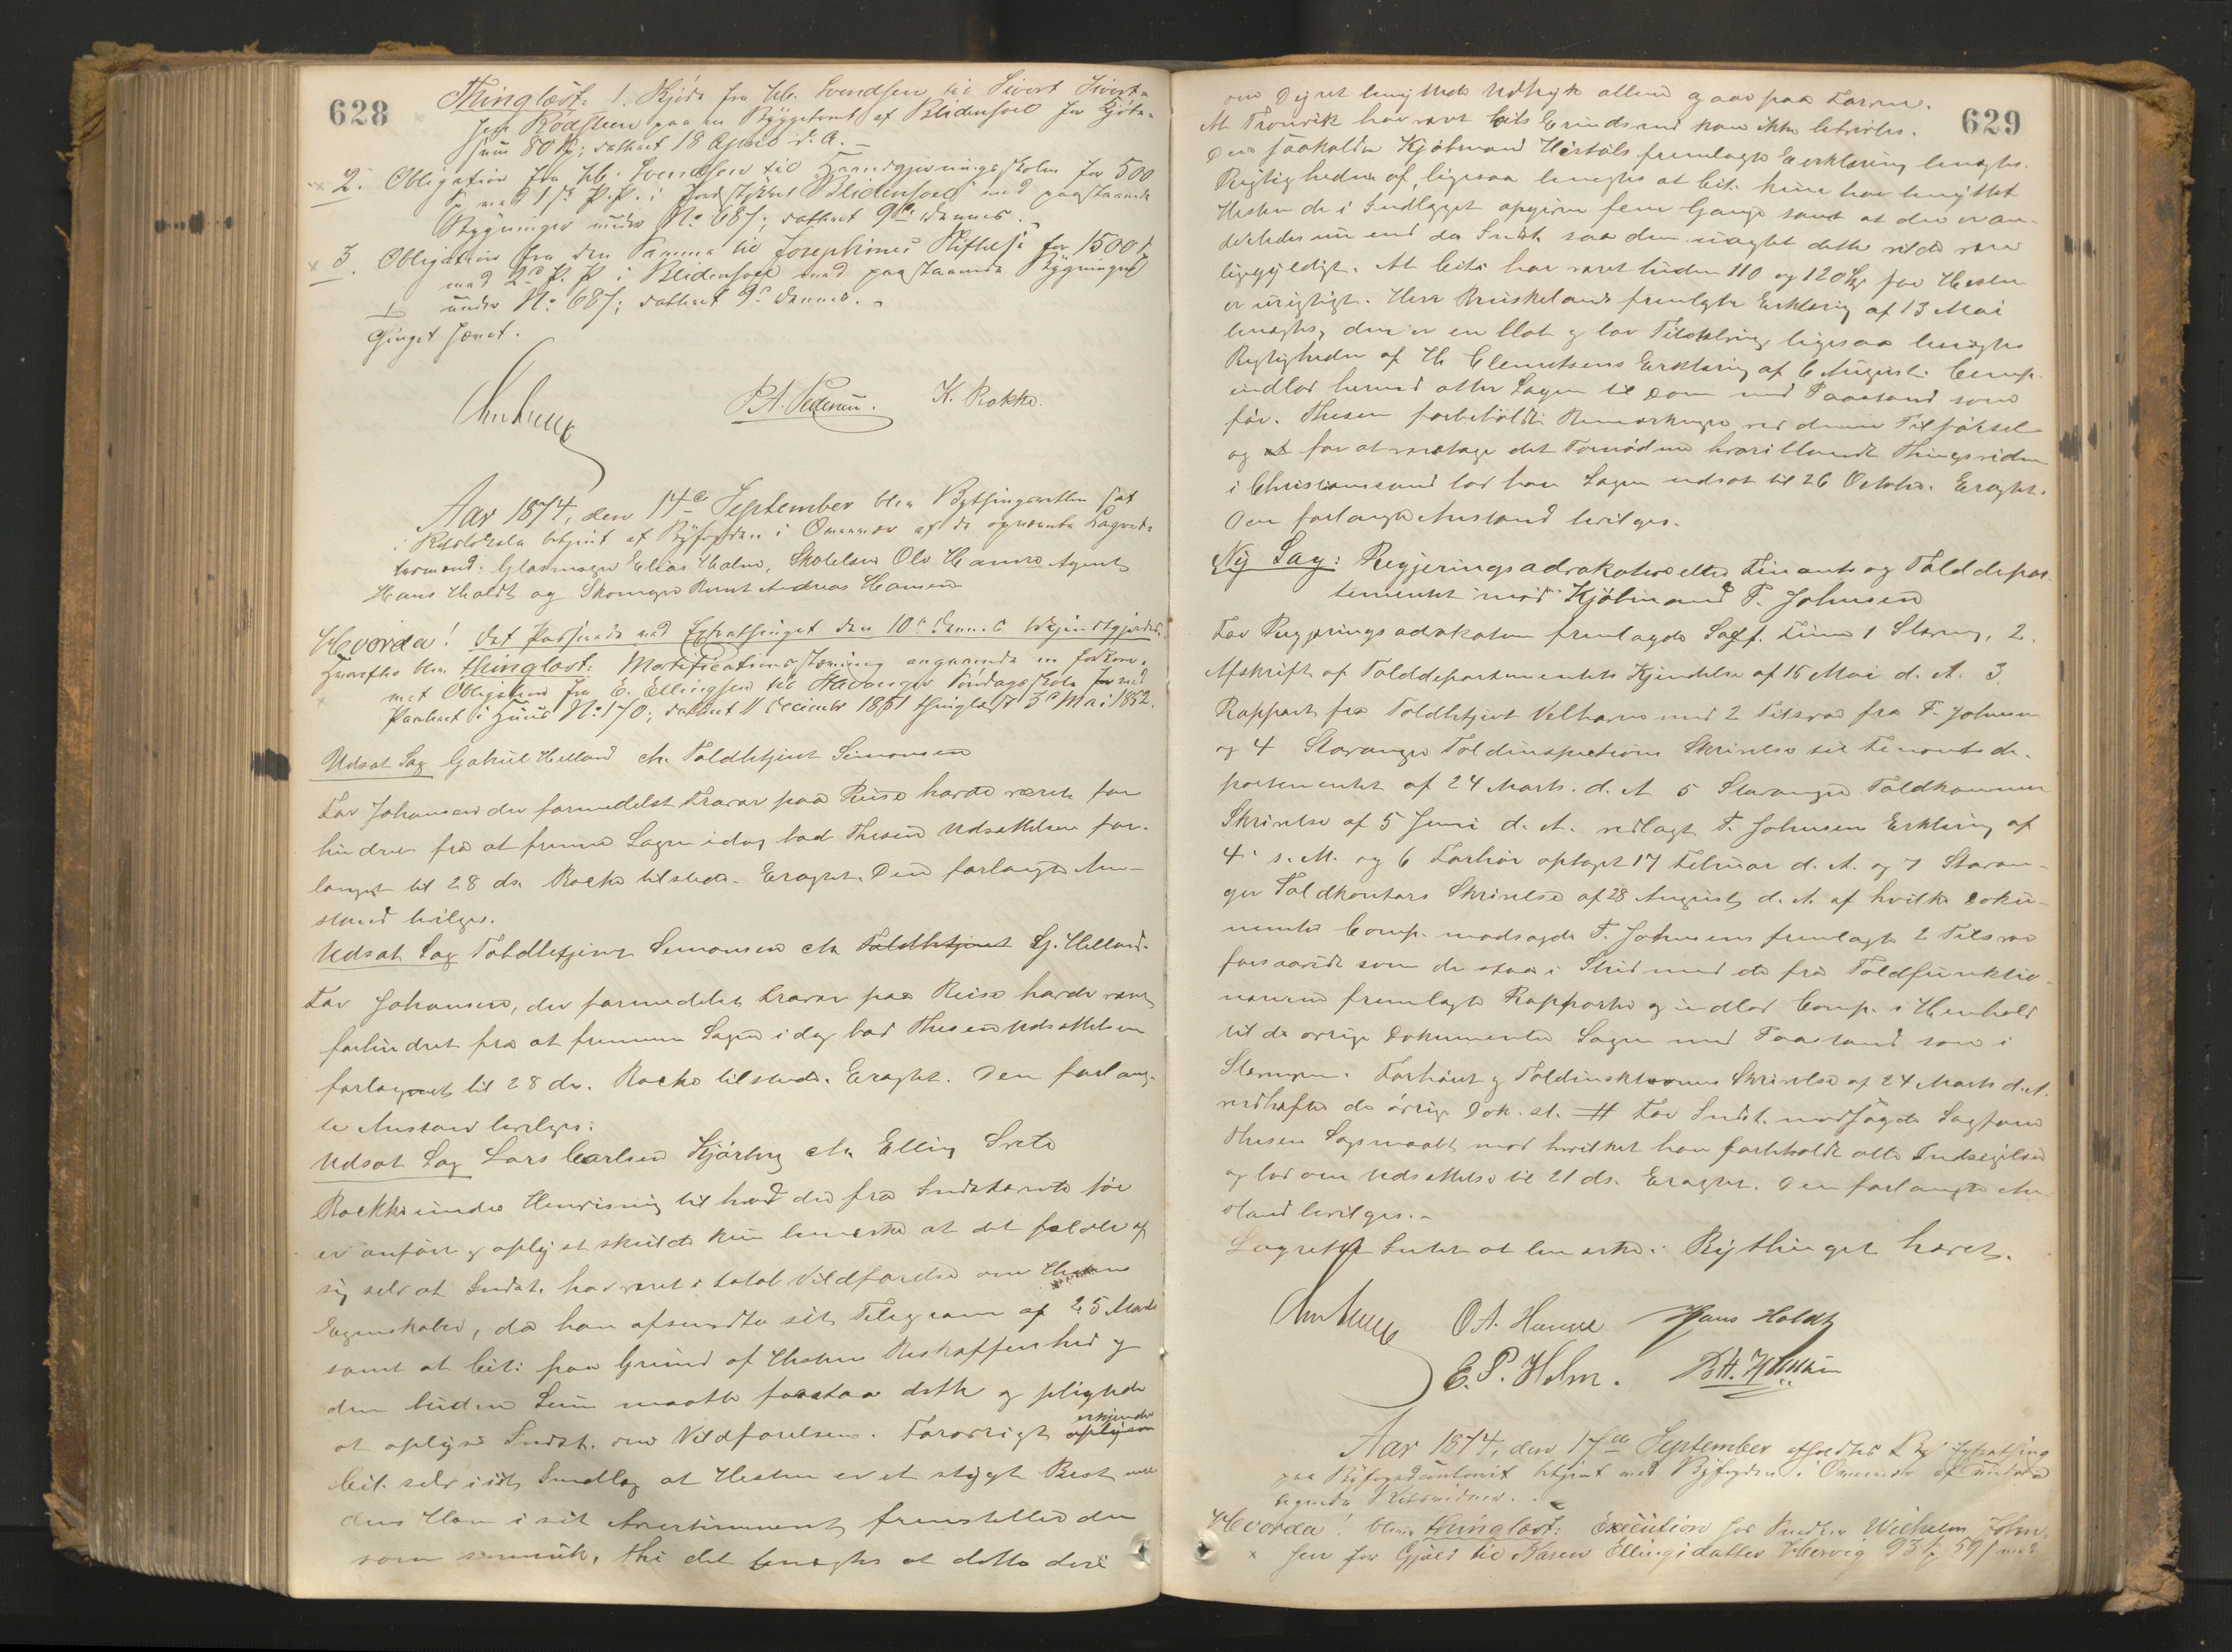 628
Thinglæst: 1. Skjøde fra Chr. Svendsen til Sivert Sivert-
sen Rødsteen paa en Byggetomt af Blidensoel for Kjøbe-
sum 80 Sp; dateret 18 April d. A.
2. Obligation fra Chr. Svendsen til Haandgjerningsskolen for 500
med 1ste P.P. i Jordstykket Blidensoel med paastaaende
Bygninger under No 687; dateret 9de dennes.
3. Obligation fra den Samme til Josephines Stiftelse for 1500
med 2d P. P. i Blidensoel med paastaaende Bygninger
under No 687; dateret 9de dennes.
Thinget hævet.
P.A. Pedersen. K. Rokke.
Aar 1874, den 14de September blev Bythingsretten sat
i Retslokalet betjent af Byfogden i Overvær af de opnævnte Lagrette-
mænd: Glasmager Elias Holm, Skolelærer Ole Hanne Agent
Hans Holdt og Skomager Bernt Andreas Hansen
Hvorda! Det Passerede ved Extrathinget den 10de dennes bekjendtgjordes.
Hvorefter blev thinglæst: Mortificationsstævning angaaende en forkom-
met Obligation fra E. Ellingsen til Stavanger Søndagsskole med
Panteret i Huus No 170; dateret 11 December 1851 thinglæst 3de Mai 1852.
Udsat Sag Gabriel Helland ctr. Toldbetjent Simonsen
For Johansen der formedelst Fravær paa Reise havde været for
hindret fra at fremme Sagen idag bad Thesen Udsættelsen for-
langet til 28 ds. Rocke tilstede. Eragtet. Den forlangte An-
stand bevilges.
Udsat Sag Toldbetjent Simonsen ctr. Toldbetjent G. Helland.
For Johansen, der formedelst Fravær paa Reise havde været
forhindret fra at fremme Sagen i dag bad Thesen Udsættelsen
forlænget til 28 ds. Rocke tilstede. Eragtet. Den forlang-
te Anstand bevilges.
Udsat Sag Lars Carlsen Kjørberg ctr. Elling Svete
Rockke under Henvisning til hvad der fra Indstævnte før
er anført og oplyst skulde kun bemærke at det falder af
sig selv at Indst. har været i total Vildfarelse om Hestens
Egenskaber, da han afsendte sit Telegram af 25 Marts
samt at Cit. paa Grund af Hestens Beskaffenhed og
den budne Sum maatte forstaa dette og pligtede
at oplyse Indst. om Vildfarelsen. Forøvrigt oplyser erkjender
Cit. selv i sit Indlæg at Hesten er et stygt Bæst me-
dens Han i sit Avertissement fremstilled den
som smuk, thi det benægtes at dette dere
629
om Dyret benyttede Udtryk alene gaar paa Farven.
At Tronvik har været Cits Erindsmand kan ikke betvivles.
Den saakaldte Kjøbmand Hertals fremlagte Erklæring benægtes.
Rigtigheden af, ligesaa benægtes at Cit. kun har benyttet
Hesten de i Indlægget opgivne fem Gange samt at den er an-
derledes nu end da Indst. saa den uagtet dette vilde være
ligegyldigt. At Cits. har været buden 110 og 120 Sp for Hesten
er urigtigt. Herr Bruskelands fremlagte Erklæring af 13 Mai
benægtes, den er en flot og løs Tilstaaelse, ligesaa benægtes
Rigtigheden af H. Clemetsens Erklæring af 6 August. Comp.
indlod hermed atter Sagen til Dom med Paastand som
før. Thesen forbeholdt Bemærkninger ved denne Tilførsel
og for at varetage det Fornødne hvoriblandt Thingsvidne
i Christiansand bad han Sagen udsat til 26 October. Eragtet.
Den forlangte Anstand bevilges.
Ny Sag: Regjeringsadvokaten efter Finants og Tolddepar-
tementet mod Kjøbmand T. Johnsen
For Regjeringsadvokaten fremlagde Sagf. Finne 1 Stævning, 2.
Afskrift af Tolddepartementets Kjendelse af 15 Mai d. A. 3.
Rapport fra Toldbetjent Velharve med 2 Tilsvar fra T. Johnsen
og 4 Stavanger Toldinspections Skrivelse til Finantsde-
partementet af 24 Marts. d. A 5 Stavanger Toldkammer
Skrivelse af 5 Juni d. A. vedlagt T. Johnsens Erklæring af
4de s. M. og 6 Forhør optaget 17 Februar d. A. og 7 Stavan-
ger Toldkontors Skrivelse af 28 August d. A. af hvilke Doku-
menter Comp. modsagde T. Johnsens fremlagte 2 Tilsvar
forsaavidt som de staa i Strid med de fra Toldfunktio-
nærerne fremlagte Rapporter og indlod Comp. i Henhold
til de øvrige Dokumenter Sagen med Paastand som i
Stævningen. Forhøret og Toldinspektionens Skrivelse af 24 Marts d. A.
vedhæftes de øvrige Dok. sl. # For Indst. modsagde Sagfører
Thesen Søgsmaalet mod hvilket han forbeholdt alle Indsigelser
og bad om Udsættelse til 21 ds. Eragtet. Den forlangte An-
stand bevilges.
Lagretten Intet at bemærke. Bythinget hævet.
O.A. Hanne Hans Holdt
E. P. Holm. B.A. Hansen
Aar 1874, den 17de September afholdtes By Extrathing
paa Byfogedcontoret betjent med Byfogden i Overvær af under-
tegnede Retsvidner.
Hvorda! blev thinglæst: Execution hos Snedker Wilhelm John-
sen for Gjæld til Karen Ellingsdatter Hervig 93 Sp 59 s med